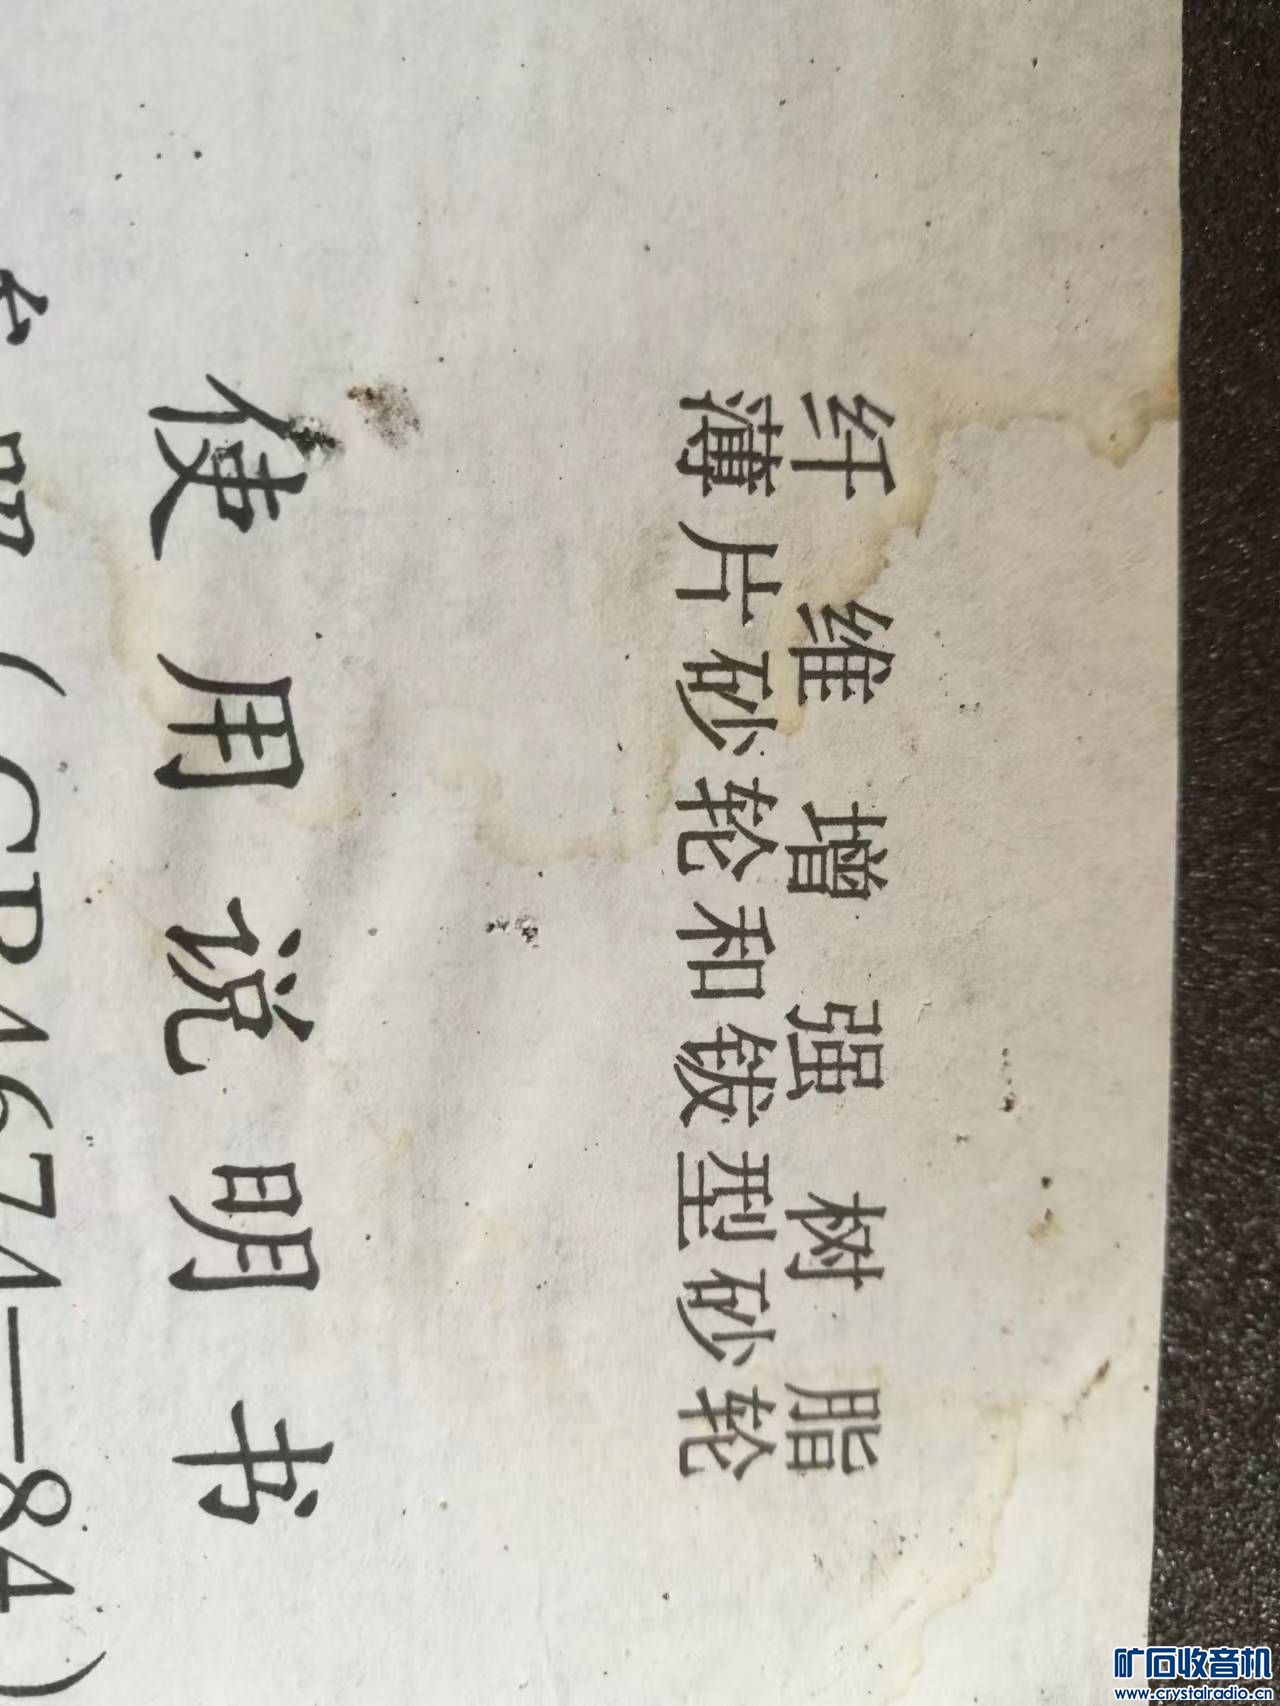 纤维增强树脂
薄片砂轮和钹型砂轮
使用说明书
(GB4674—84)
矿石收音机
www.crystalradio.cn